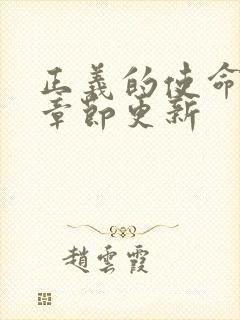 正義的使命
章節更新
趙雲霞